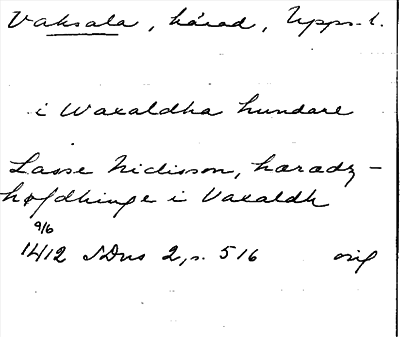 Vaksala, härad, Upps. l.
i Waxaldha hundare
Lasse Niclisson, haradz-
høfdhinge i Vaxaldh
9/6
1412 SDns 2, s. 516 orig